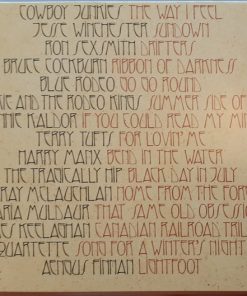 COWBOY JUNKIES THE WAY I FEEL
JESSE WINCHESTER SUNDOWN
RON SEXSMITH DRIFTERS
BRUCE COCKBURN RIBBON OF DARKNESS
BLUE RODEO GO GO ROUND
AND THE RODEO KINGS SUMMER SIDE OF
NNIE KALDOR IF YOU COULD READ MY MIN
TERRY TUFTS FOR LOVIN' ME
HARRY MANX BEND IN THE WATER
THE TRAGICALLY HIP BLACK DAY IN JULY
RAY MCLAUHLAN HOME FROM THE FOR
ARIA MULDAUR THAT SAME OLD OBSESSI
ES KEELAGHAN CANADIAN RAILROAD TRIL
QUARTETTE SONG FOR A WINTER'S NIGHT
AENGUS FINNAN LIGHTFOOT